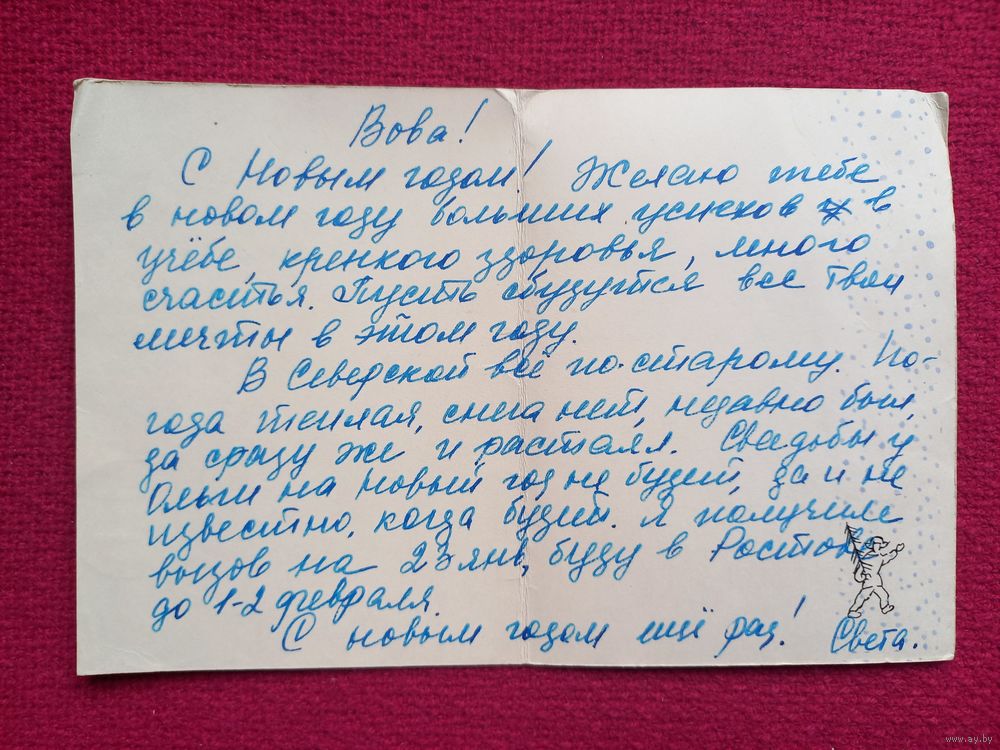 Вова!
С Новым годом! Желаю тебе
в новом году больших успехов в
учёбе, крепкого здоровья, много
счастья. Пусть сбудутся все твои
мечты в этом году.
В Северской всё по-старому. По-
года теплая, снега нет, недавно был,
да сразу же и растаял. Свадьбы у
Ольги на Новый год не будет, да и не
известно, когда будет. Я получила
вызов на 23 янв, буду в Ростове
до 1-2 февраля.
С новым годом ещё раз! Света.
www.ay.by